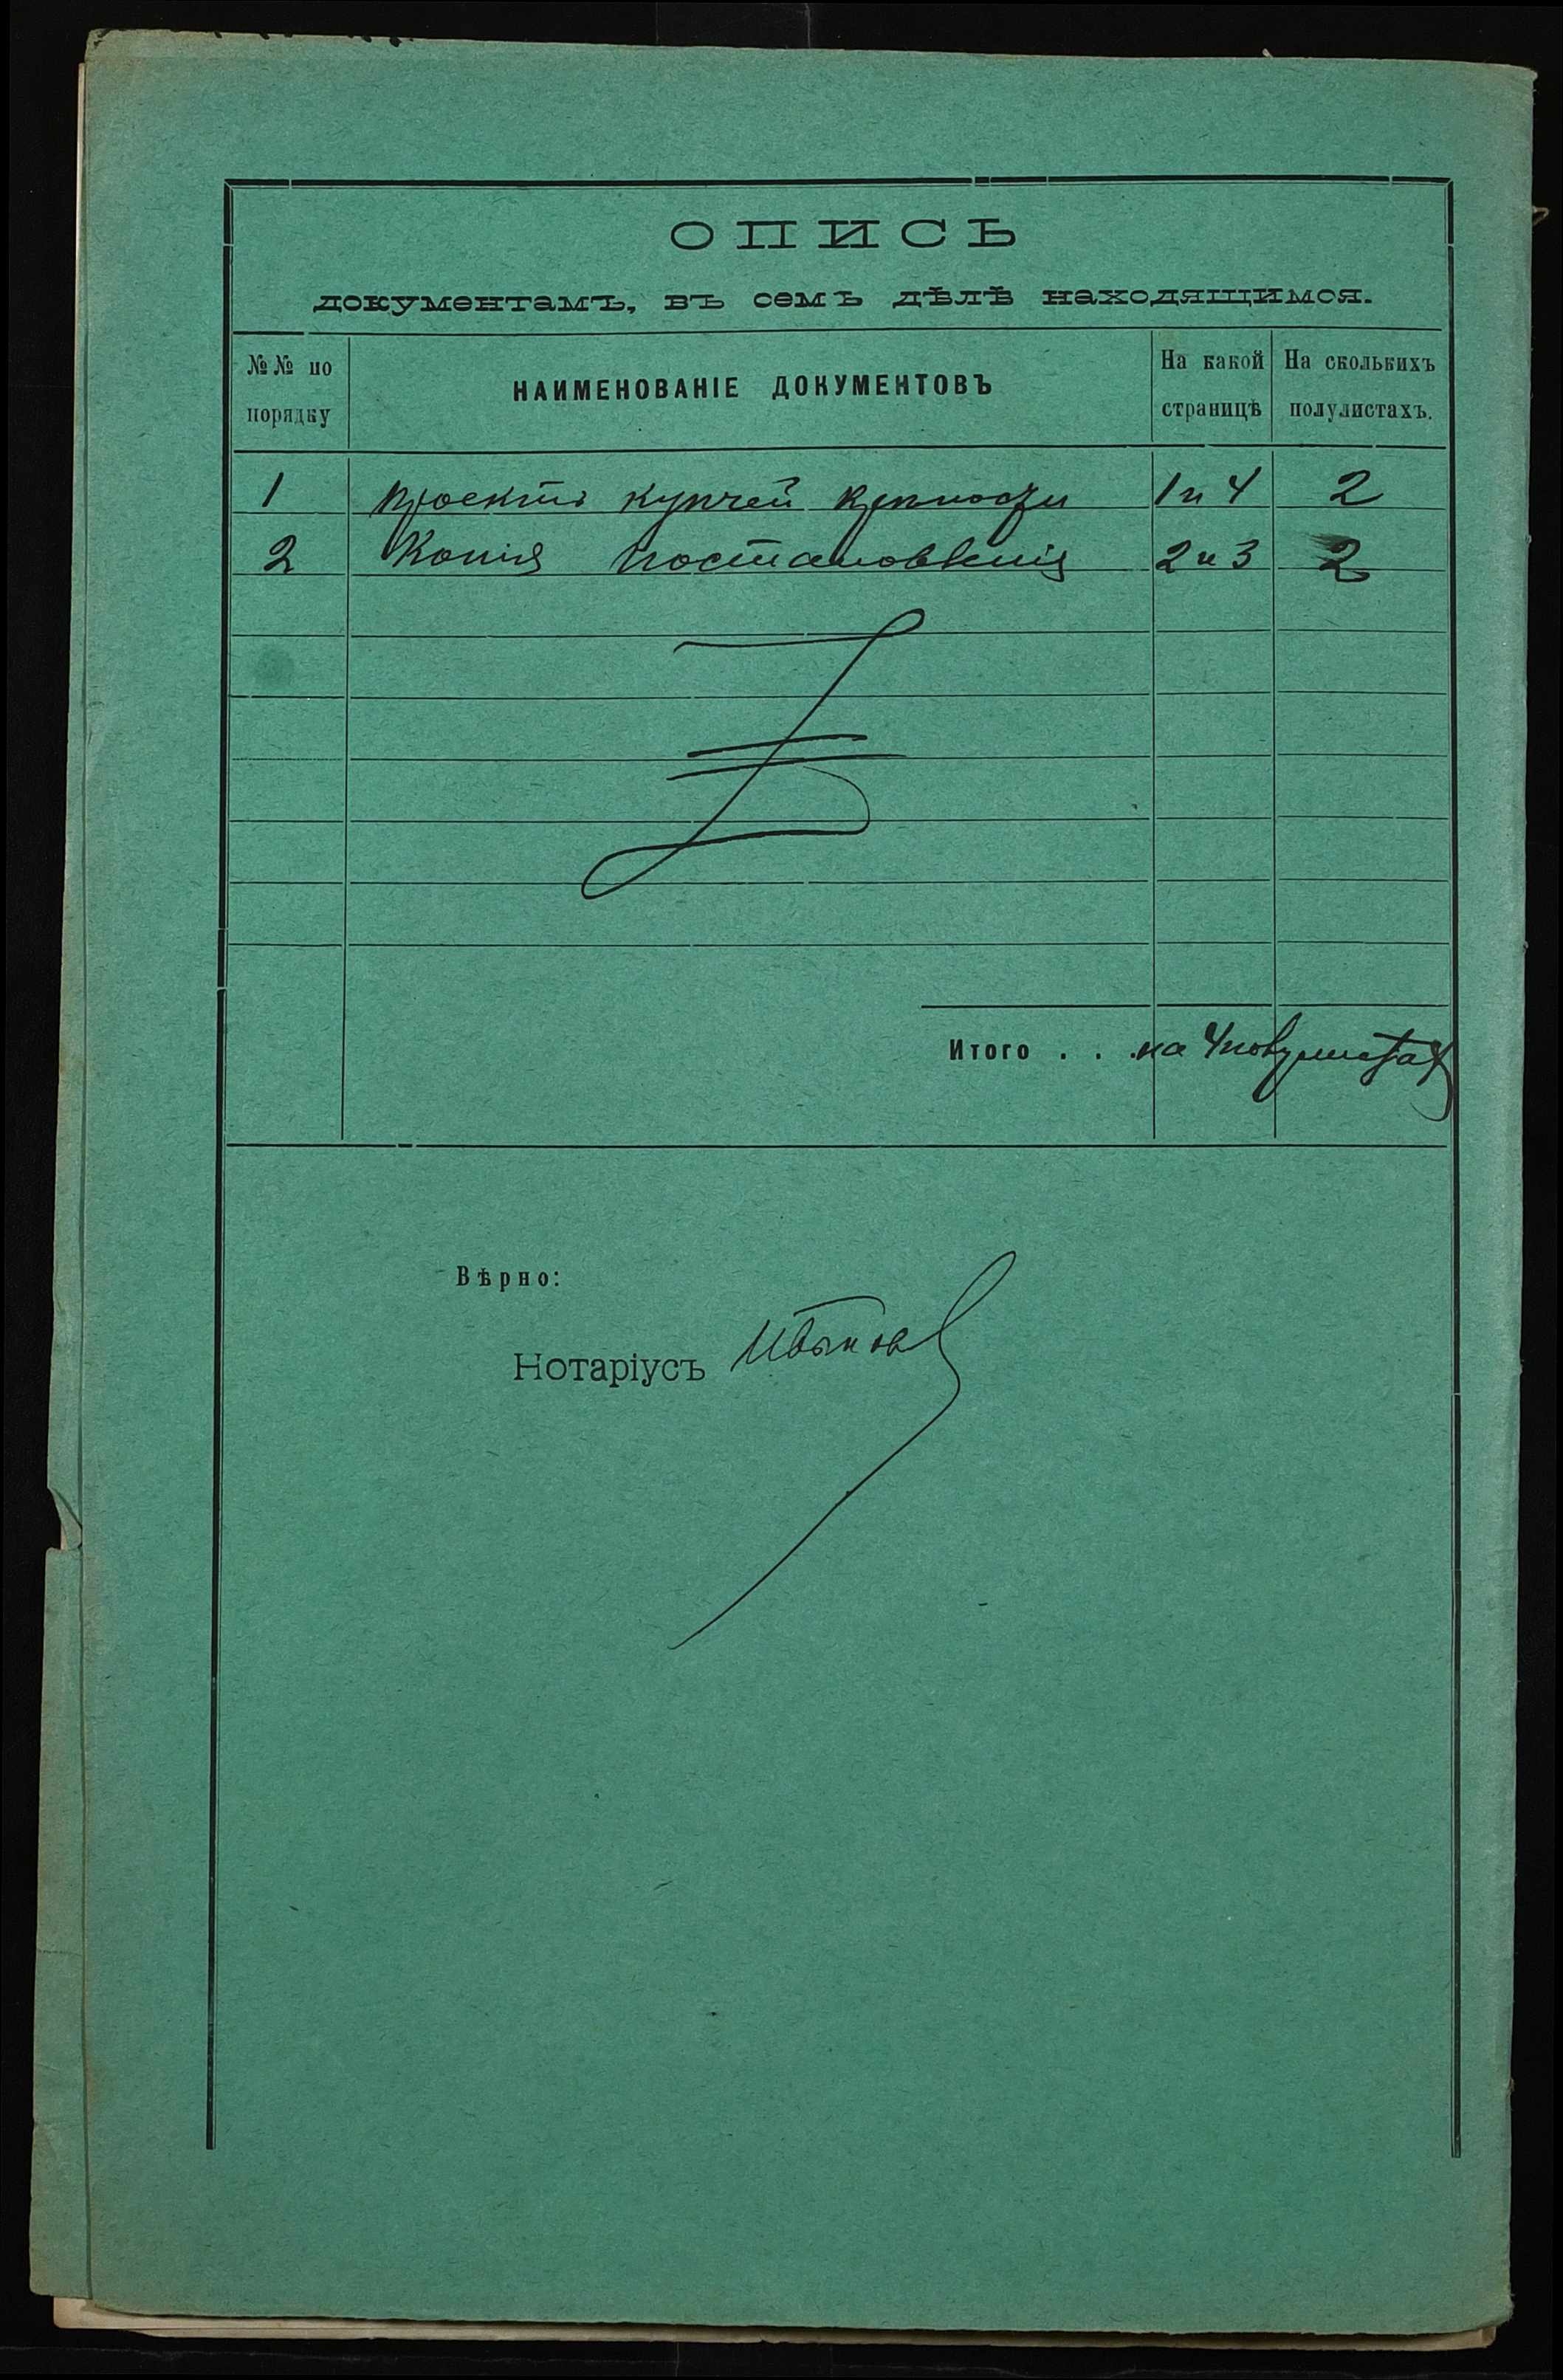 ОПИСЬ
документамъ, въ семъ дѣлѣ находящимся.
№№ по порядку
НАИМЕНОВАНІЕ ДОКУМЕНТОВЪ
На какой страницѣ
На сколькихъ полулистахъ.
1 Проектъ купчей крѣпости 1 и 4 2
2 Копія постановленія 2 и 3 2
Итого . . . на 4 полулистах
Вѣрно:
Нотаріусъ Иванов